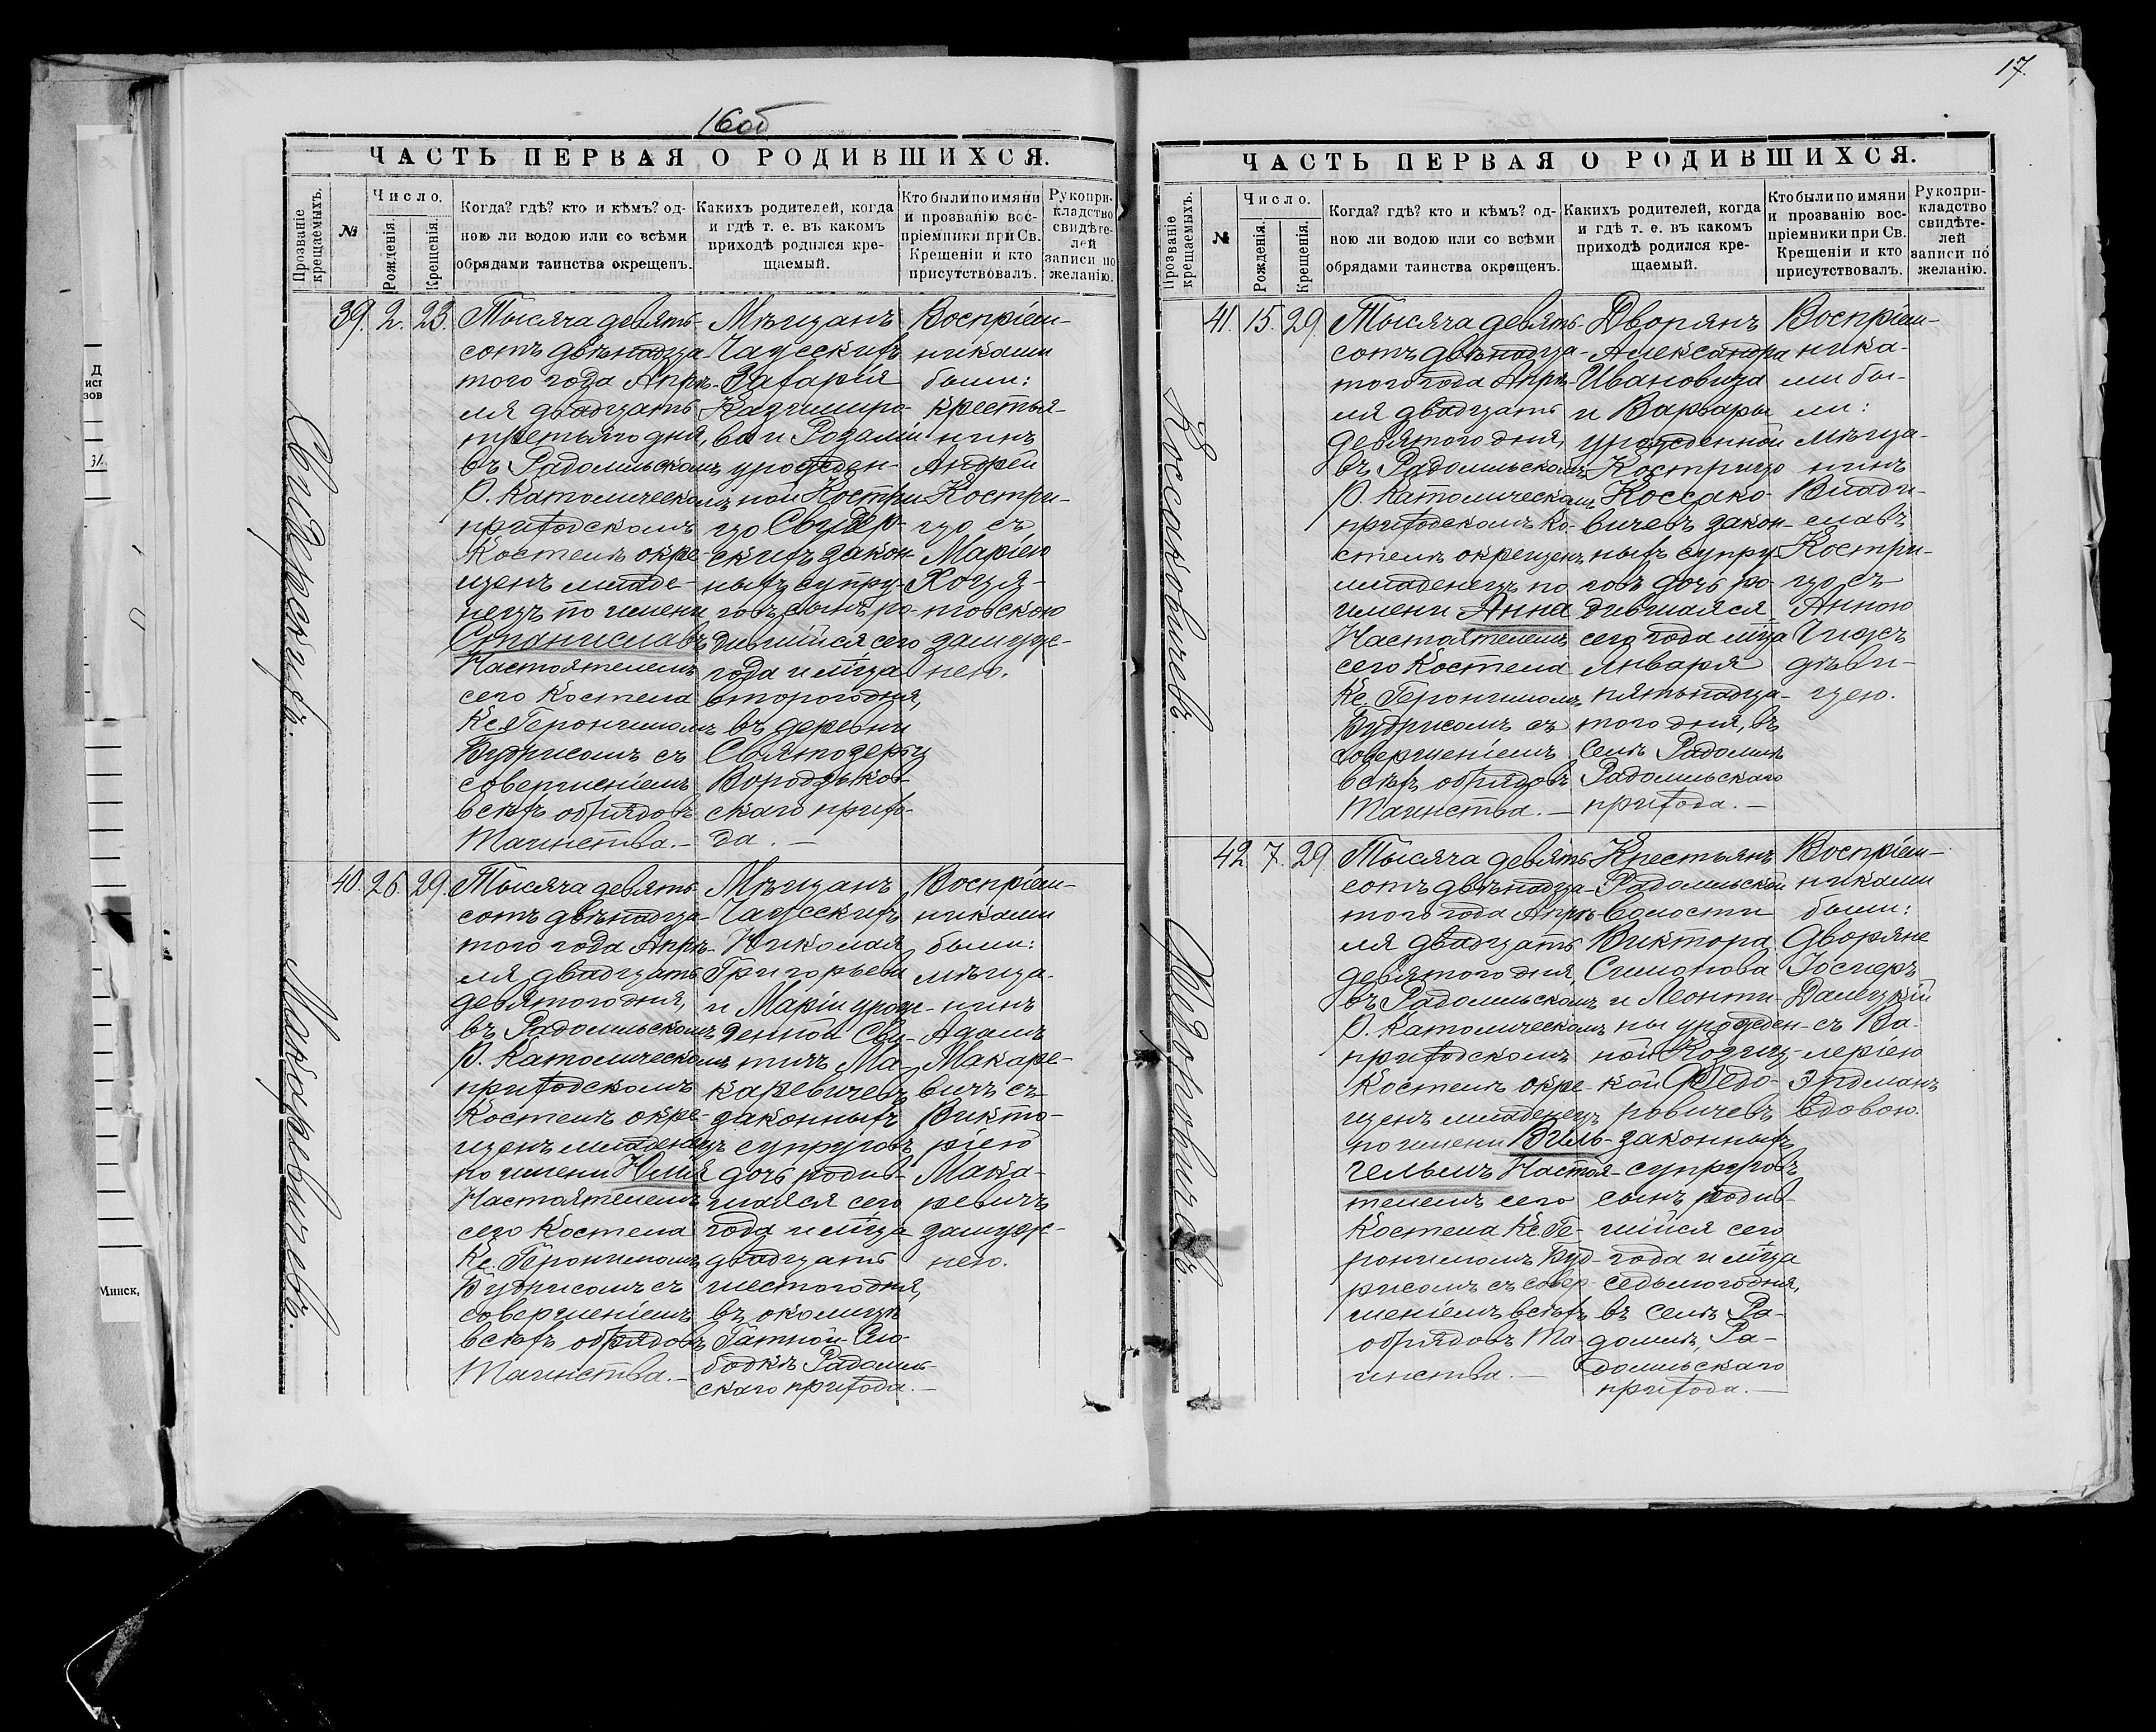 16об
ЧАСТЬ ПЕРВАЯ О РОДИВШИХСЯ.
Прозваніе крещаемыхъ.
№
Число.
Рожденія.
Крещенія.
Когда? гдѣ? кто и кѣмъ? од-
ною ли водою или со всѣми
обрядами таинства окрещенъ.
Какихъ родителей, когда
и гдѣ т. е. въ какомъ
приходѣ родился кре-
щаемый.
Кто были по имяни
и прозванію вос-
пріемники при Св.
Крещеніи и кто
присутствовалъ.
Рукопри-
кладство
свидѣте-
лей
записи по
желанію.
39. 2. 23.
Тысяча девять-
сотъ двѣнадца
того года Апрѣ-
ля двадцать
третьяго дня,
въ Радомльскомъ
Р. Католическомъ
приходскомъ
Костелѣ окре-
щенъ младе-
нецъ по имени
Станиславъ
Настоятелемъ
сего Костела
Кс. Геронимомъ
Будрисомъ съ
совершеніемъ
всѣхъ обрядовъ
Таинства.—
Мѣщанъ
Чаусскихъ
Захарія
Казимиро-
ва и Розаліи
урожден-
ной Костри
цо
закон-
ныхъ супру-
говъ сынъ ро-
дившійся сего
года и мѣца
второго дня,
въ деревни
скаго прихо-
да.—
Воспріем-
никами
были:
крестья-
нинъ
Андрей
Костри-
цо съ
Маріею
замуж-
нею.
40. 26. 29.
Макаревичевъ.
Тысяча девять-
сотъ двѣнадца-
того года Апрѣ-
ля двадцать
девятого дня,
въ Радомльскомъ
Р. Католическомъ
приходскомъ
Костелѣ окре-
щенъ младенецъ
по имени
Настоятелемъ
сего Костела
Кс. Геронимомъ
Будрисомъ съ
совершеніемъ
всѣхъ обрядовъ
Таинства.—
Мѣщанъ
Чаусскихъ
Николая
Григорьева
и Маріи урож-
денной
Ма-
каревичевъ
законныхъ
супруговъ
дочь родив-
шаяся сего
года и мѣца
двадцать
шестого дня,
въ околицѣ
Гатной Сло-
бодкѣ Радомль-
скаго прихода.—
Воспріем-
никами
были:
мѣща-
нинъ
Адамъ
Макаре-
вичъ съ
Викто-
ріею
Мака-
ревичъ
замуж-
нею.
17.
ЧАСТЬ ПЕРВАЯ О РОДИВШИХСЯ.
Прозваніе крещаемыхъ.
№
Число.
Рожденія.
Крещенія.
Когда? гдѣ? кто и кѣмъ? од-
ною ли водою или со всѣми
обрядами таинства окрещенъ.
Какихъ родителей, когда
и гдѣ т. е. въ какомъ
приходѣ родился кре-
щаемый.
Кто были по имяни
и прозванію вос-
пріемники при Св.
Крещеніи и кто
присутствовалъ.
Рукопри-
кладство
свидѣте-
лей
записи по
желанію.
41. 15. 29.
Коссаковичевъ.
Тысяча девять-
сотъ двѣнадца-
того года Апрѣ-
ля двадцать
девятого дня,
въ Радомльскомъ
Р. Католическомъ
приходскомъ Ко-
стелѣ окрещенъ
младенецъ по
имени Анна
Настоятелемъ
сего Костела
Кс. Геронимомъ
Будрисомъ съ
совершеніемъ
всѣхъ обрядовъ
Таинства.—
Дворянъ
Александра
Ивановича
и Варвары
урожденной
Кострицо
Коссако-
вичевъ закон-
ныхъ супру-
говъ дочь ро-
дившаяся
сего года мѣца
Января
пятьнадца-
того дня, въ
Селѣ Радомлѣ
Радомльскаго
прихода.—
Воспріем-
ника-
ми бы-
ли:
мѣща-
нинъ
Влади-
славъ
Костри-
цо съ
Анною
Чижъ
дѣви-
цею.
42 7. 29.
Ѳедоровичевъ.
Тысяча девять
сотъ двѣнадца-
того года Апрѣ-
ля двадцать
девятого дня,
въ Радомльскомъ
Р. Католическомъ
приходскомъ
Костелѣ окре-
щенъ младенецъ
по имени Виль-
гельмъ Настоя-
телемъ сего
Костела Кс. Ге-
ронимомъ Буд-
рисомъ съ совер-
шеніемъ всѣхъ
обрядовъ Та-
инства.—
Крестьянъ
Радомльской
волости
Виктора
Симонова
и Леонти-
ны урожден-
ной
Ѳедо-
ровичевъ
законныхъ
супруговъ
сынъ родив-
шійся сего
года и мѣца
седьмого дня,
въ селѣ Ра-
домлѣ, Ра-
домльскаго
прихода.—
Воспріем-
никами
были:
Дворяне
съ Ва-
леріею
Эрдманъ
вдовою.
Минск,